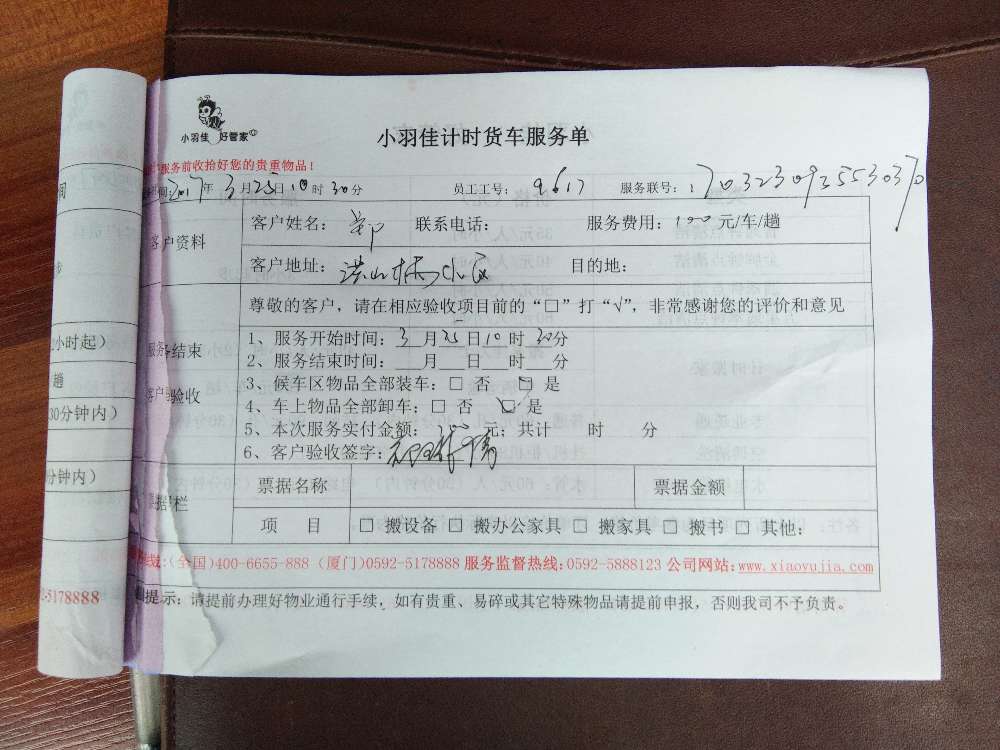 小羽佳 好管家
小羽佳计时货车服务单
服务前收拾好您的贵重物品！
2017年3月25日10时30分 员工工号： 9617 服务联号：
客户资料
客户姓名： 联系电话： 服务费用：100元/车/趟
客户地址： 目的地：
尊敬的客户，请在相应验收项目前的“□”打“√”，非常感谢您的评价和意见
服务结束
客户验收
1、服务开始时间：3月25日10时30分
2、服务结束时间：___月___日___时___分
3、候车区物品全部装车：□ 否 □ 是
4、车上物品全部卸车：□ 否 □ 是
5、本次服务实付金额： 元；共计 时 分
6、客户验收签字：
票据栏
票据名称 票据金额
项 目 □ 搬设备 □ 搬办公家具 □ 搬家具 □ 搬书 □ 其他：
线：(全国)400-6655-888 (厦门)0592-5178888 服务监督热线：0592-5888123 公司网站：www.xiaoyujia.com
提示：请提前办理好物业通行手续，如有贵重、易碎或其它特殊物品请提前申报，否则我司不予负责。
2小时起）
趟
30分钟内）
分钟内）
2-5178888